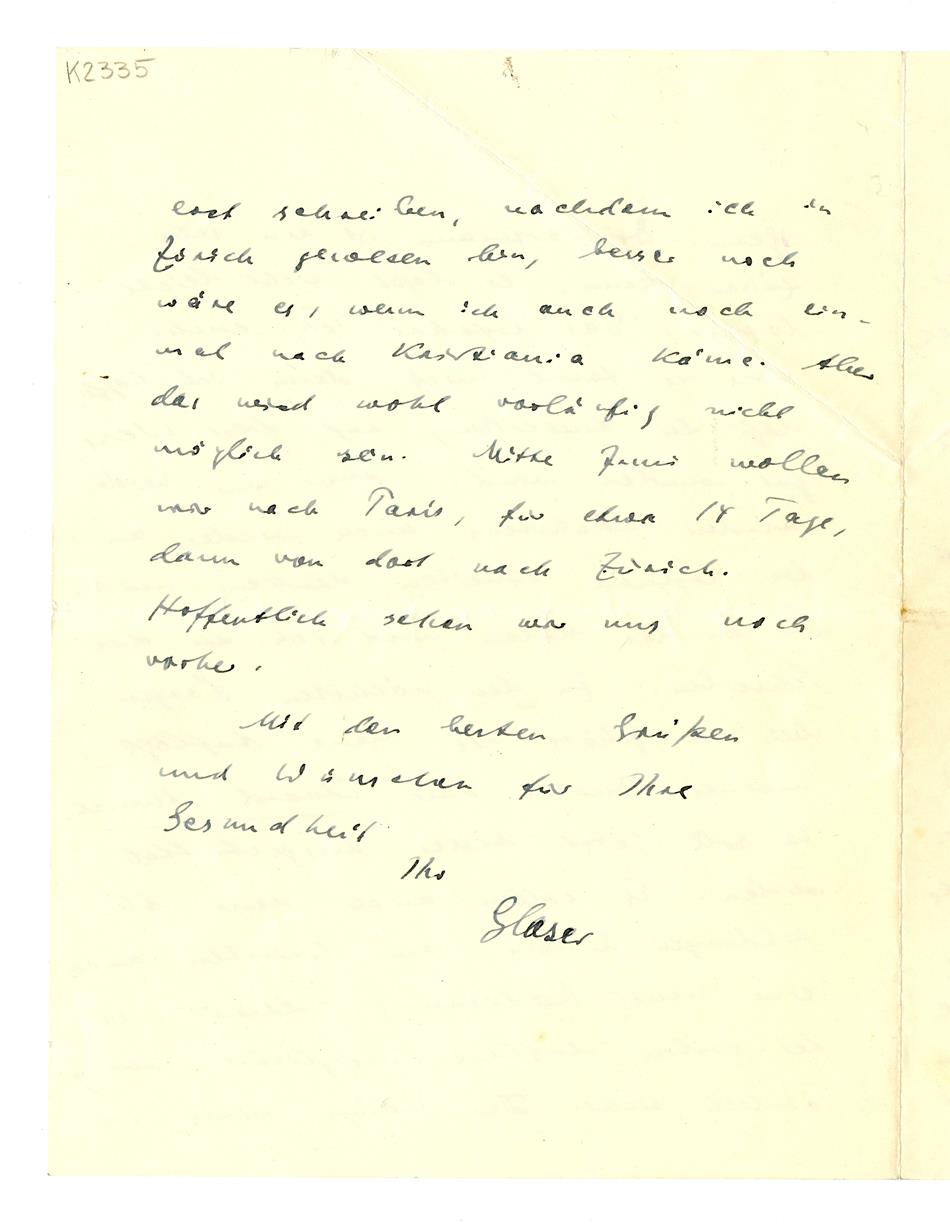 K2335
erst schreiben, nachdem ich in
Zürich gewesen bin, besser noch
wäre es, wenn ich auch noch ein-
mal nach Kristiania käme. Aber
das wird wohl vorläufig nicht
möglich sein. Mitte Juni wollen
wir nach Paris, für etwa 14 Tage,
dann von dort nach Zürich.
Hoffentlich sehen wir uns noch
vorher.
Mit den besten Grüßen
und Wünschen für Ihre
Gesundheit
Ihr
Glaser